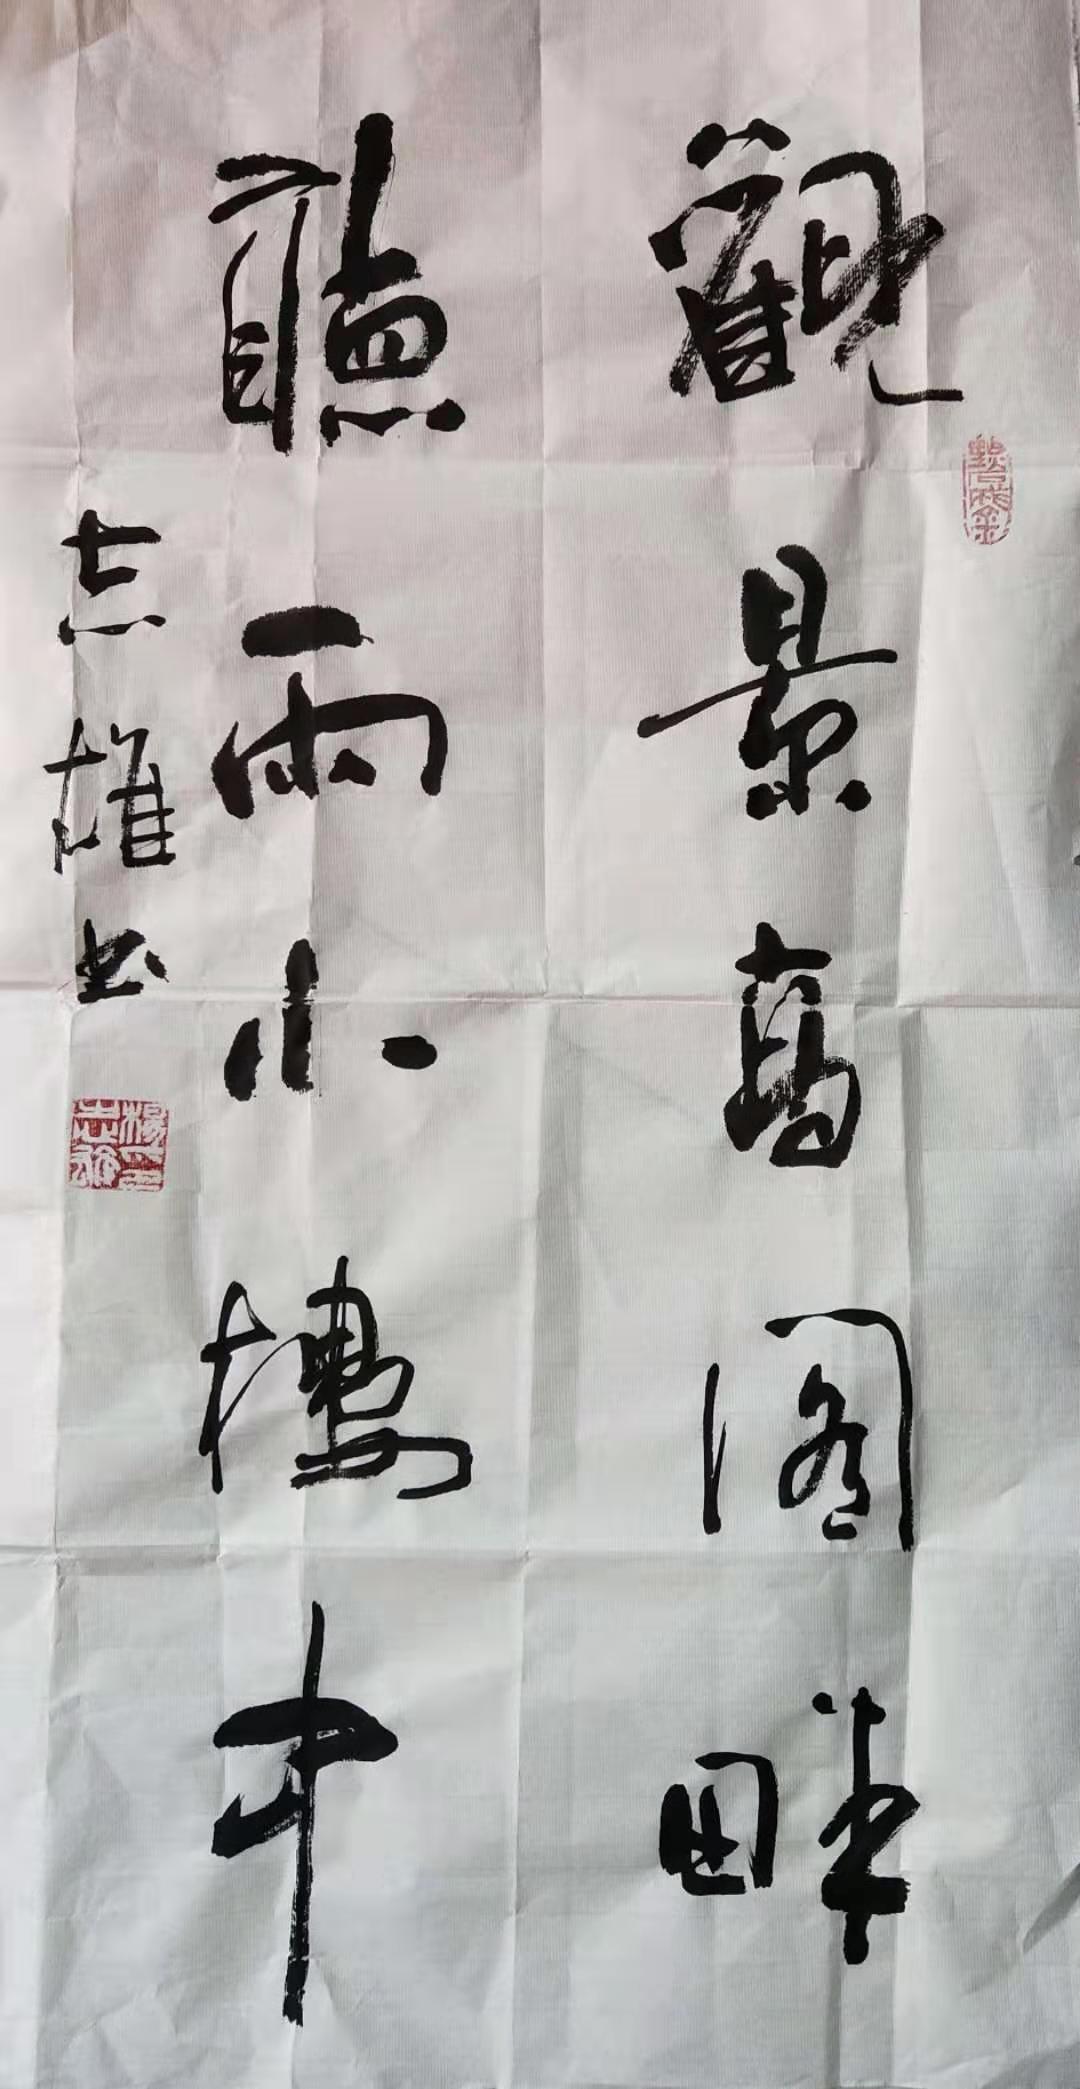 觀景高阁畔
聽雨小樓中
志雄书
楊志雄印